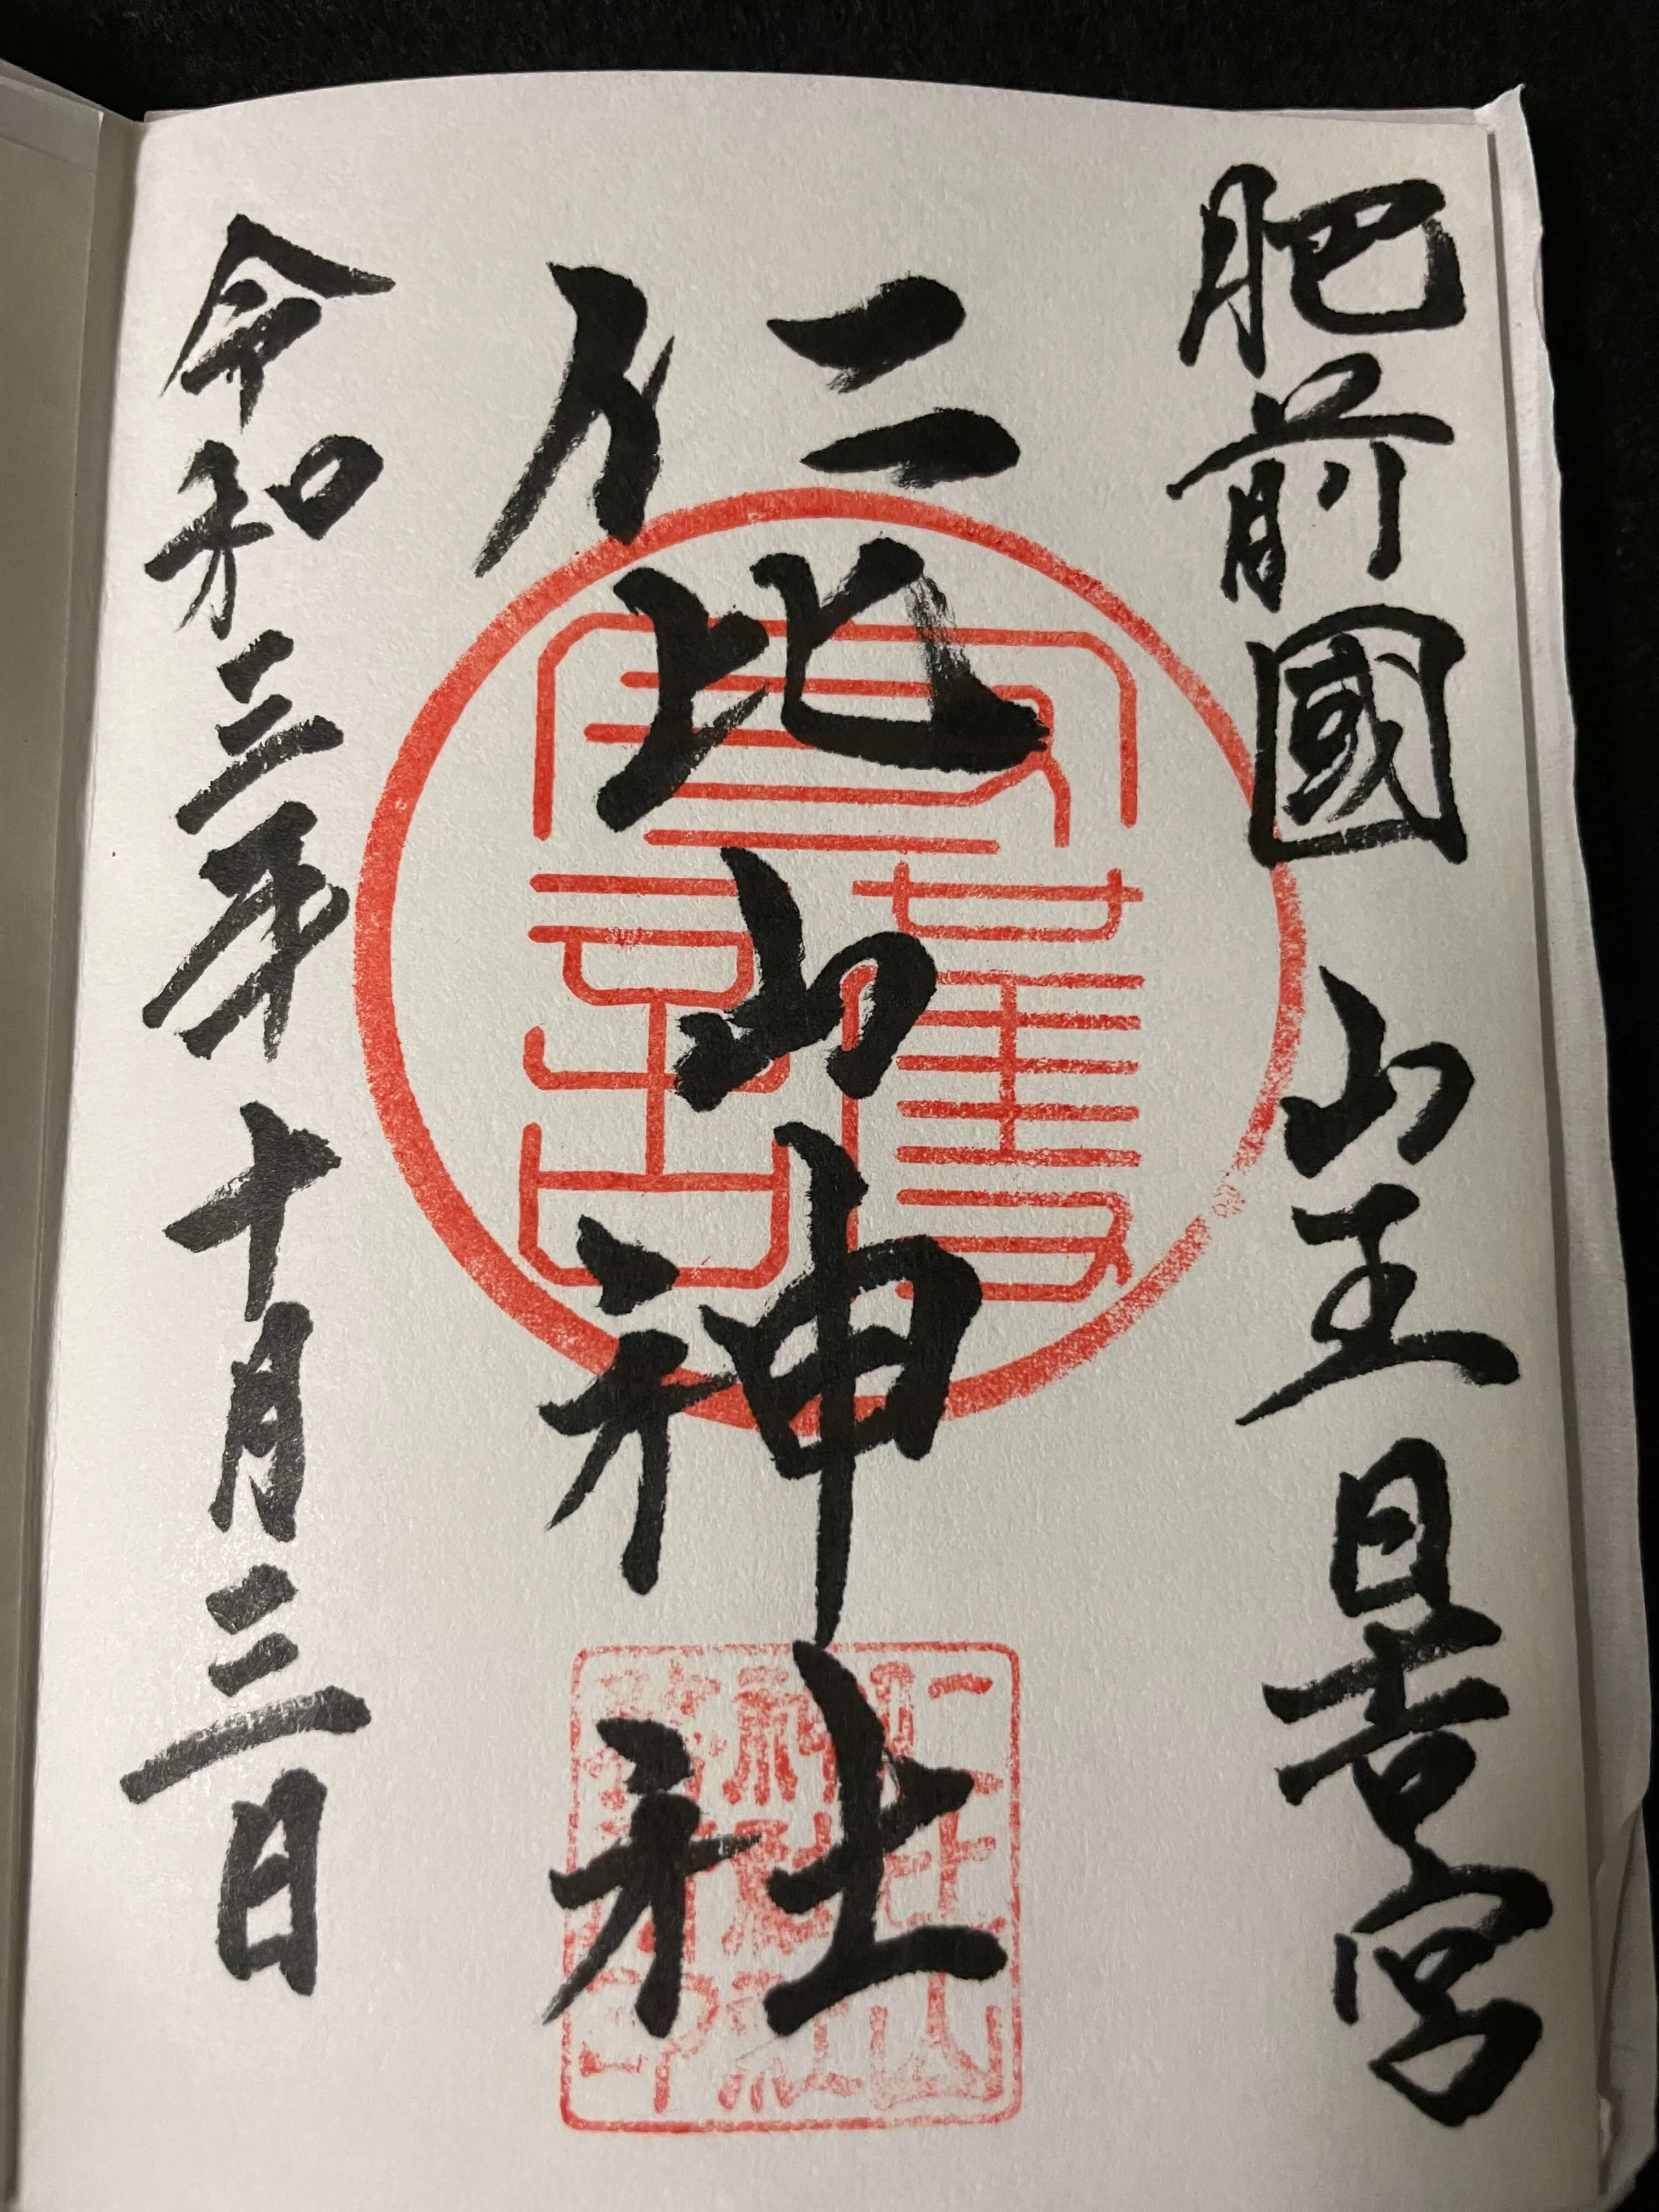 肥前國 山王日吉宮
仁比山神社
令和三年十月三日